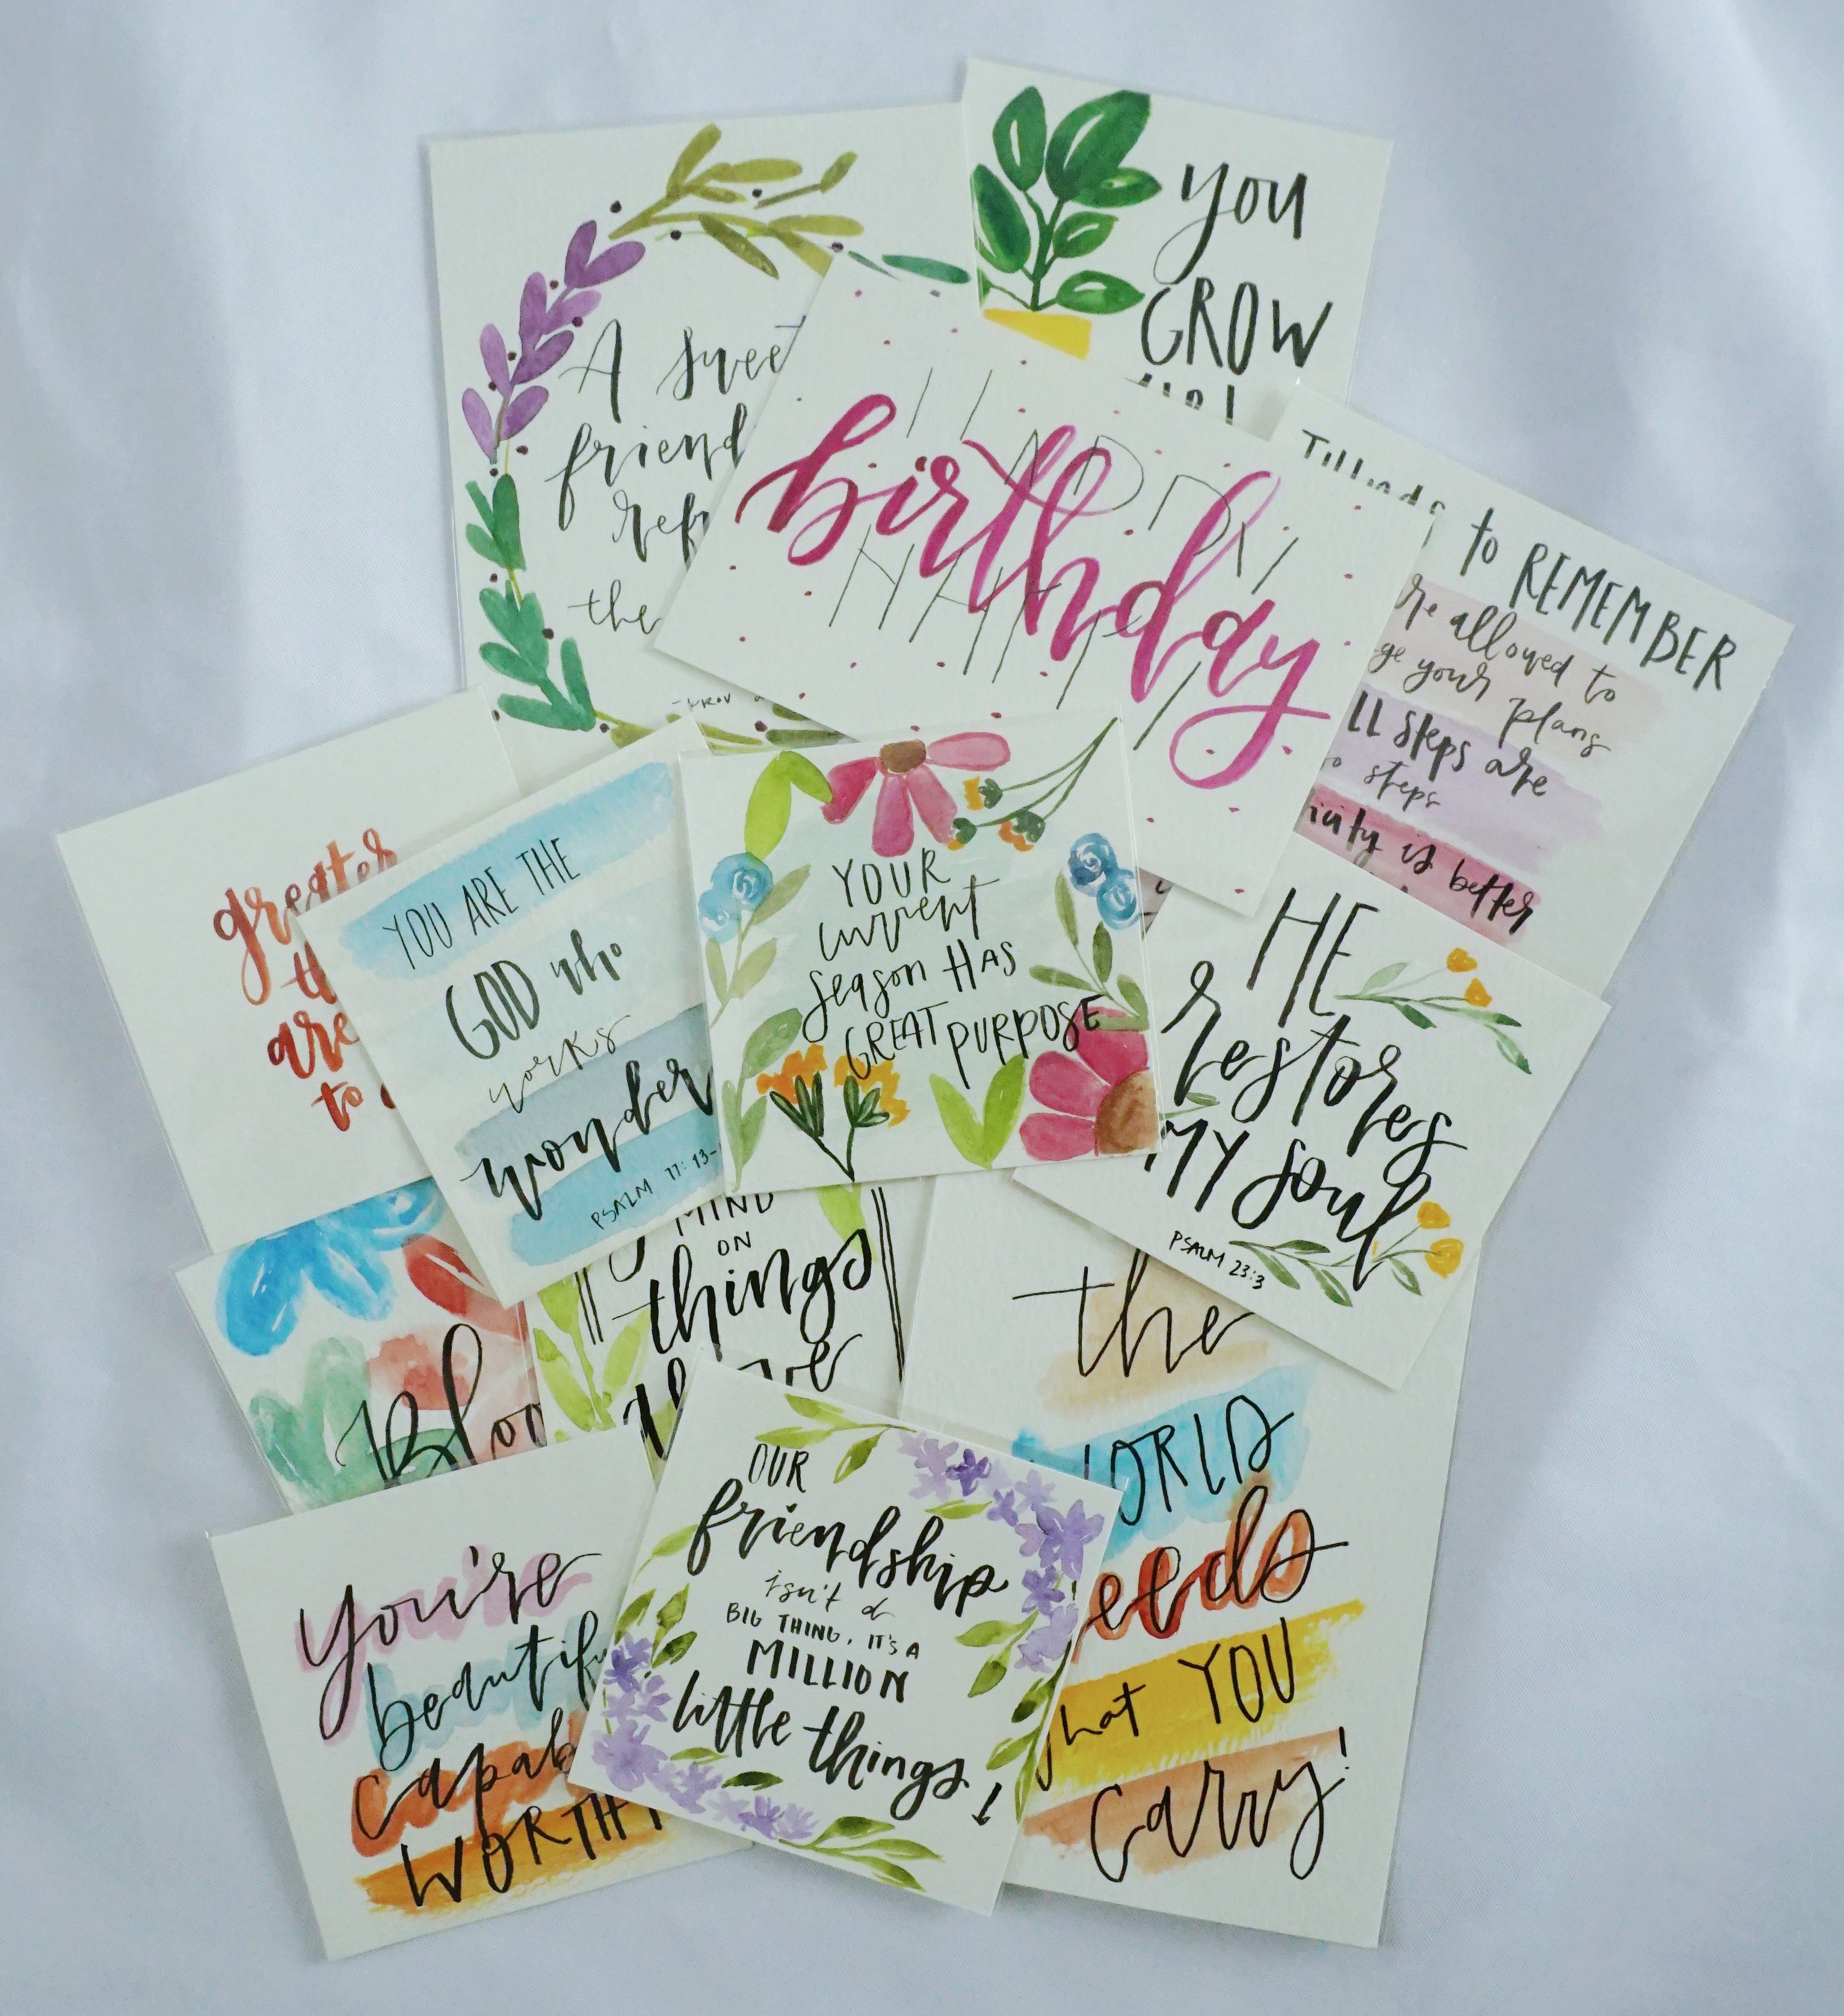 you
GROW
A sweet
friend
the
HAPPY
birthday
HAPPY
to REMEMBER
allowed to
your plans
steps are
steps
is better
greater
are
to
YOU ARE THE
GOD who
works
wonder
PSALM 77:13-
YOUR
current
season HAS
GREAT PURPOSE
HE
restores
MY soul
PSALM 23:3
MIND
ON
things
Bloo
the
WORLD
needs
what YOU
carry!
you're
beautif
capab
WORTHY
OUR
friendship
isn't a
BIG THING, IT'S A
MILLION
little things!